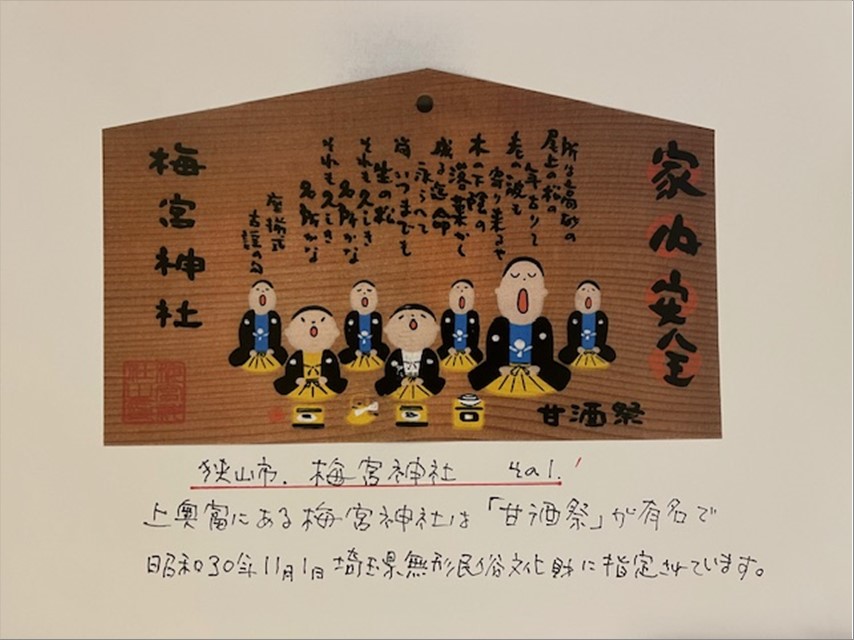 家内安全
所は高砂の
尾上の松の
年古りて
老の波も
寄り来るや
木の下陰の
落葉かく
成る迄命
永らへて
尚いつまでも
生の松
それも久しき
名所かな
それも久しき
名所かな
座揃式
古謡の句
梅宮神社
甘酒祭
狭山市. 梅宮神社 その1.
上奥富にある梅宮神社は「甘酒祭」が有名で
昭和30年11月1日埼玉県無形民俗文化財に指定されています。